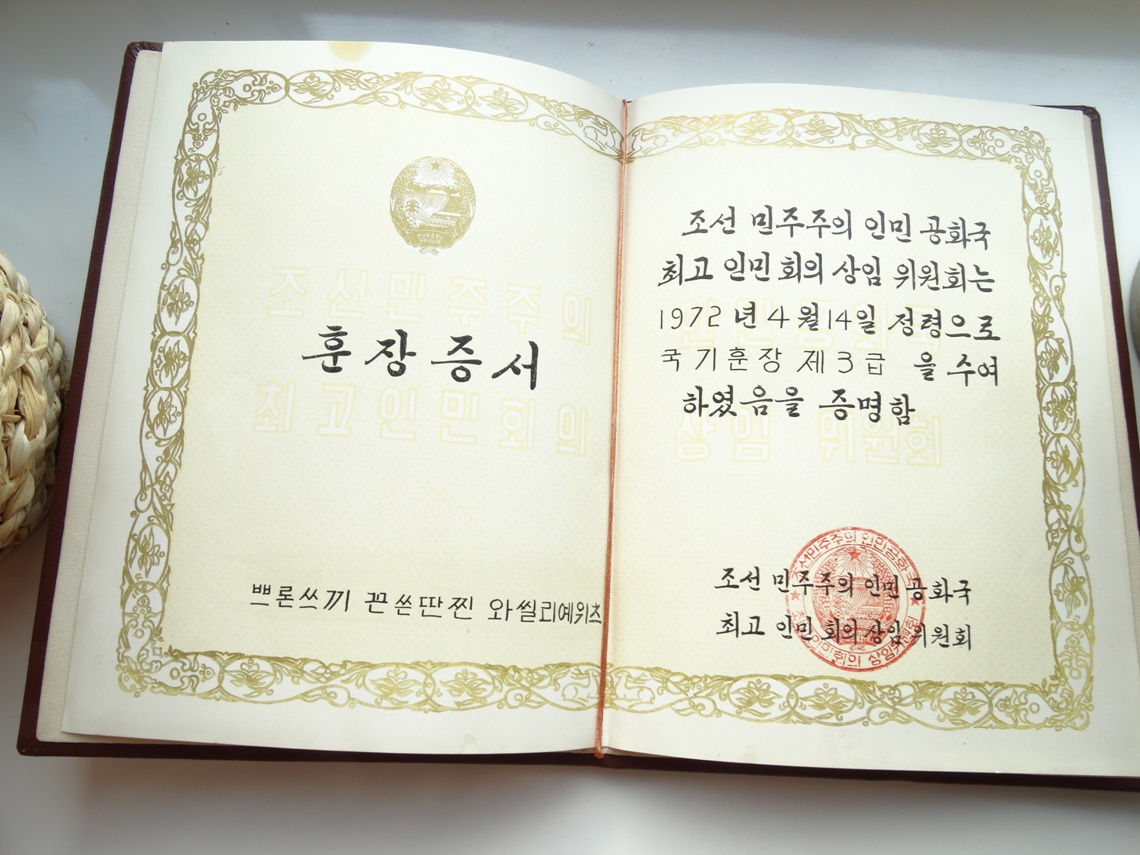 조선민주주의
훈장증서
최고인민회의
쁘론쓰끼 꼰쓴딴찐 와씰리예위츠
조선 민주주의 인민 공화국
최고 인민회의 상임 위원회는
1972년 4월 14일 정령으로
국기훈장 제3급 을 수여
하였음을 증명함
상임 위원회
조선 민주주의 인민 공화국
최고 인민회의 상임위원회